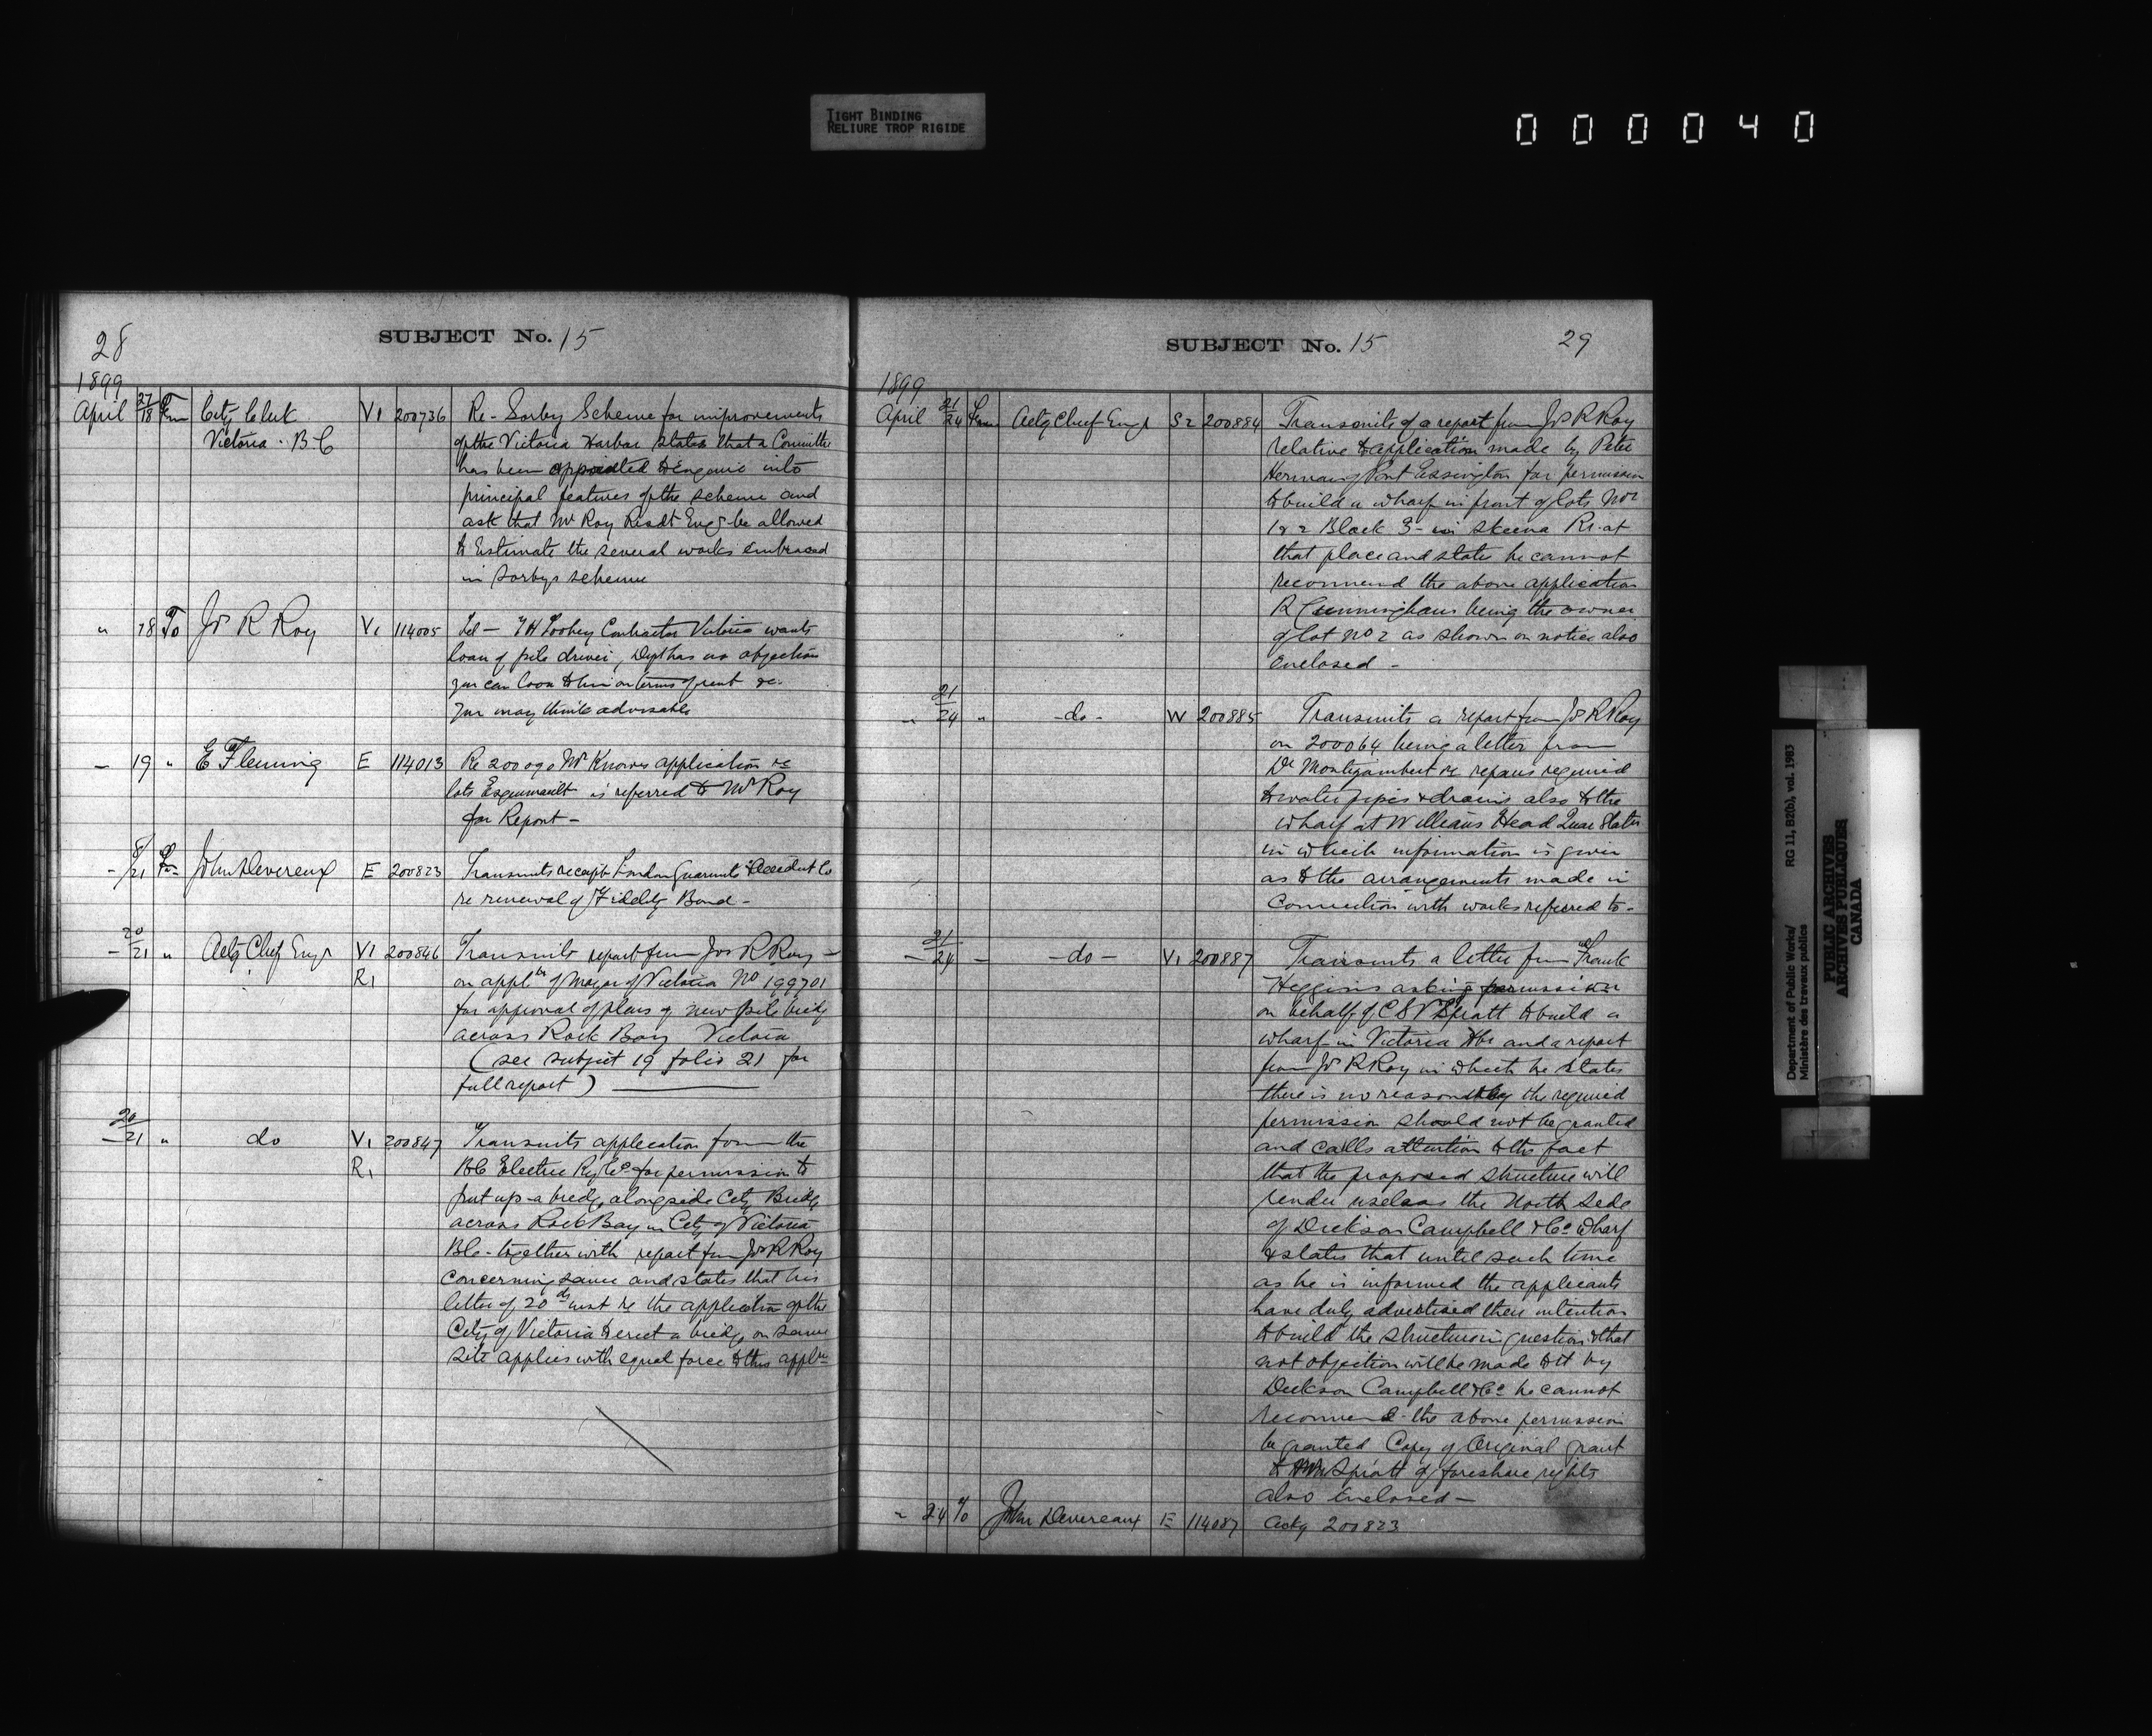 TIGHT BINDING
RELIURE TROP RIGIDE
000040
28
SUBJECT No. 15
1899
April 27/18 Fm City Clerk Victoria - B C V1 200736 Re - Sorby Scheme for improvements
of the Victoria Harbor states that a Committee
has been appointed to enquire into
principal features of the scheme and
ask that Mr Roy Resdt Engr be allowed
to Estimate the several works embraced
in Sorbys scheme
" 18 To Js R Roy V1 114005 Tel - Contractor Victoria wants
loan of pile driver, Dept has no objection
you can loan to him on terms of rent &c.
you may think advisable
- 19 " E Fleming E 114013 Re 200090 Mr Knowes application re
lots Esquimault is referred to Mr Roy
for Report -
- 8/21 Fm John Devereux E 200823 Transmits receipt London Guarantee & Accident Co
re renewal of Fidelity Bond -
- 20/21 " Actg Chief Engr V1 R1 200846 Transmits report from Jos R Roy -
on appltn of Mayor of Victoria No 199701
for approval of plans of new pile bridge
across Rock Bay Victoria
(see subject 19 folio 21 for
full report)
- 20/21 " do V1 R1 200847 Transmits application from the
B C Electric Ry Co for permission to
put up a bridge alongside City Bridge
across Rock Bay in City of Victoria
B C - together with report from Js R Roy
concerning same and states that his
letter of 20th inst re the application of the
City of Victoria to erect a bridge on same
site applies with equal force to this appltn
SUBJECT No. 15
29
1899
April 21/24 From Actg Chief Engr S2 200884 Transmits of a report from Js R Roy
relative to application made by Peter
Herman of Port Essington for permission
to build a wharf in front of lots Nos
1 & 2 Block 3 - in Skeena Rr. at
that place and states he cannot
recommend the above application
R Cunningham being the owner
of lot No 2 as shown on notice also
enclosed -
- 21/24 " - do - W 200885 Transmits a report from Js R Roy
on 200064 being a letter from
Dr Montizambert re repairs required
to water pipes & drains also to the
wharf at Williams Head Quar Station
in which information is given
as to the arrangements made in
Connection with works referred to -
- 21/24 - - do - V1 200887 Transmits a letter from Frank
Higgins asking permission
on behalf of C S V Spratt to build a
wharf in Victoria Hbr and a report
from Js R Roy in which he states
there is no reason why the required
permission should not be granted
and calls attention to the fact
that the proposed structure will
render useless the North Side
of Dickson Campbell & Co wharf
& states that until such time
as he is informed the applicants
have duly advertised their intention
to build the structure in question & that
not objection will be made to it by
Dickson Campbell & Co he cannot
recommend - the above permission
be granted Copy of Original grant
to Mr Spratt of foreshore rights
also Enclosed -
- 24 To John Devereaux E 114087 Ackg 200823
Department of Public Works/
Ministère des travaux publics
RG 11, B2(b), vol. 1983
PUBLIC ARCHIVES
ARCHIVES PUBLIQUES
CANADA